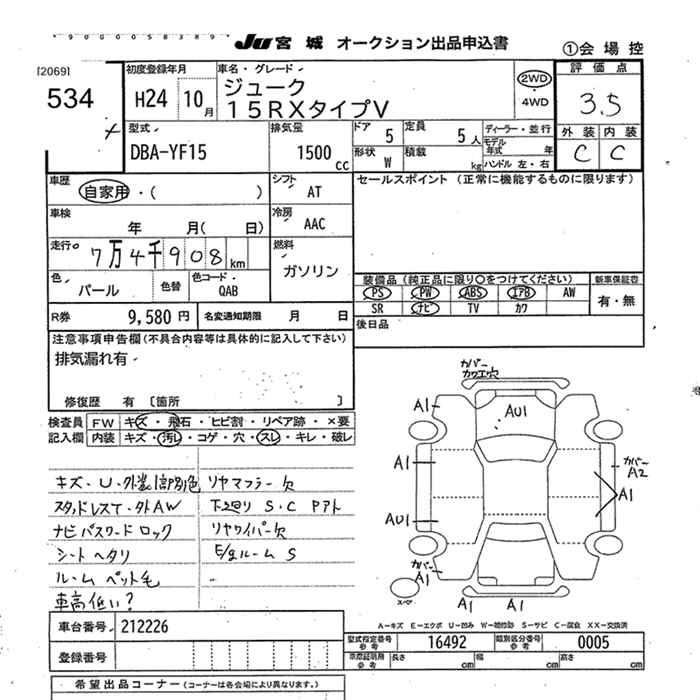 JU 宮城 オークション出品申込書
①会場控
[2069]
534
初度登録年月
H24 10月
車名・グレード
ジューク
15RXタイプV
2WD
・
4WD
評価点
3.5
外装 内装
C C
型式
DBA-YF15
排気量
1500 cc
ドア 5
定員 5人
形状 W
積載 kg
ディーラー・並行
モデル年式 年
ハンドル 左・右
車歴
自家用・( )
シフト AT
セールスポイント (正常に機能するものに限ります)
車検
年 月( 日)
冷房 AAC
走行
7万4千908 km
燃料
ガソリン
色
パール
色替
色コード
QAB
装備品 (純正品に限り〇をつけてください)
新車保証書
PS PW ABS エアB AW
有・無
SR ナビ TV カワ
R券 9,580円
名変通知期限 月 日
後日品
注意事項申告欄(不具合内容等は具体的に記入して下さい)
排気漏れ有
修復歴 有 〔箇所 〕
検査員
記入欄
FW キズ・飛石・ヒビ割・リペア跡・×要
内装 キズ・汚レ・コゲ・穴・スレ・キレ・破レ
キズ・U・外装1部別色
リヤマフラー欠
スタッドレスT・外AW
下廻り S・C Pアト
ナビパスワードロック
リヤワイパー欠
シートヘタリ
E/gルーム S
ルーム ペット毛
車高低い?
カバー
カワエ穴
A1
AU1
A1
カバー
A2
A1
AU1
カバー
A1
スペア
A1 A1
A−キズ E−エクボ U−凹み S−サビ C−腐食 XX−交換済
車台番号 212226
型式指定番号 参考 16492
類別区分番号 参考 0005
登録番号
参考
長さ cm
幅 cm
高さ cm
希望出品コーナー (コーナーは各会場により異なります。)